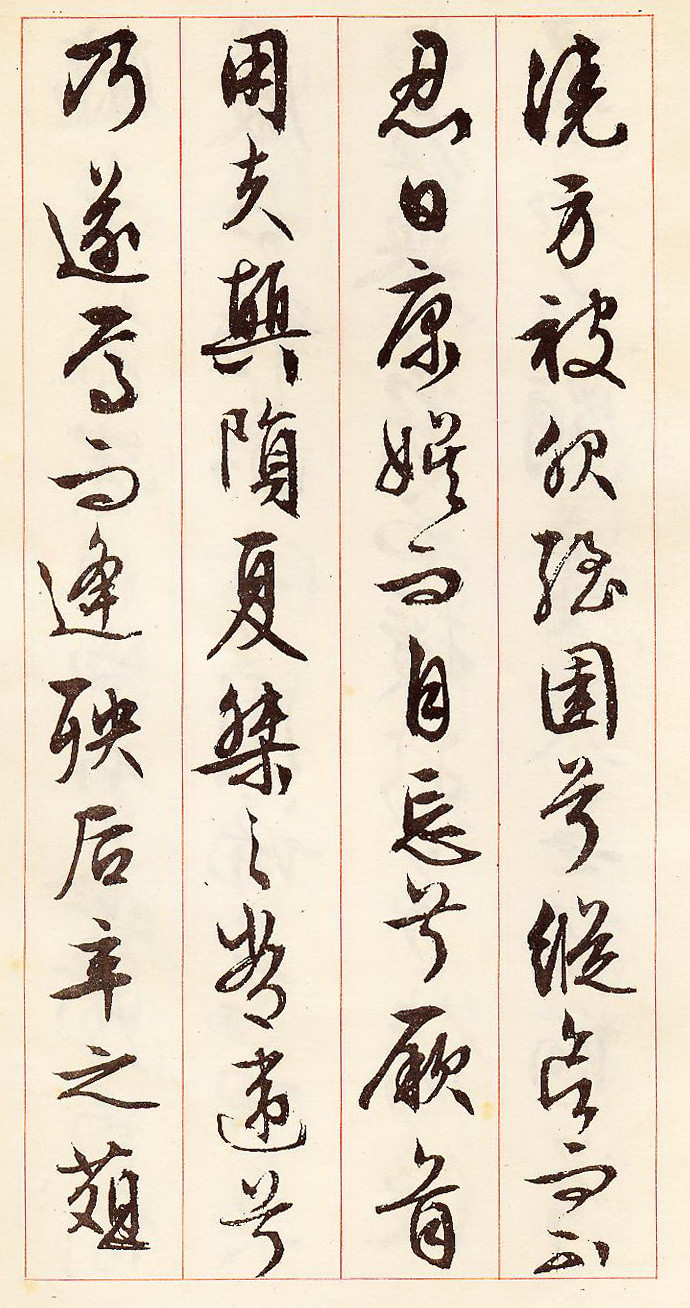 澆身被服強圉兮縱欲而不
忍日康娛而自忘兮厥首
用夫顛隕夏桀之常違兮
乃遂焉而逢殃后辛之菹